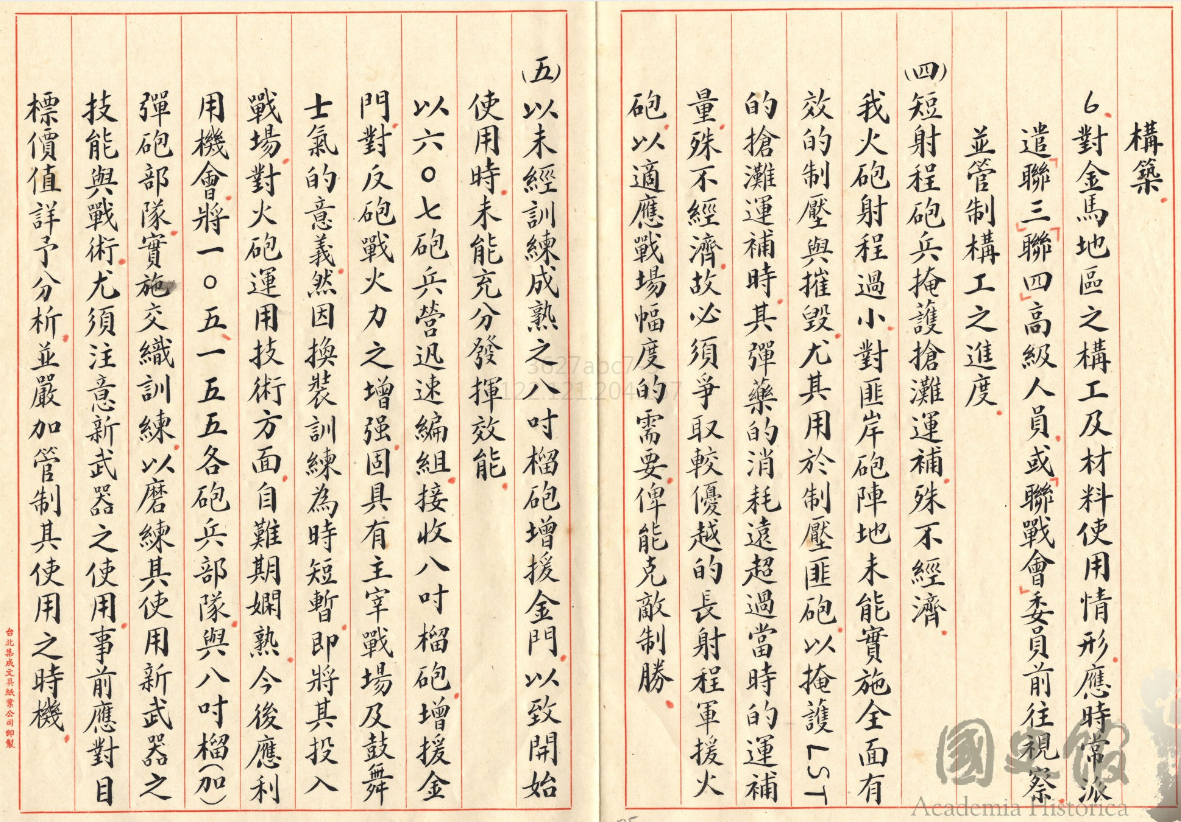 構築。
6.對金馬地區之構工及材料使用情形，應時常派
遣「聯三」「聯四」高級人員，或「聯戰會」委員前往視察，
並管制構工之進度。
(四)短射程砲兵掩護搶灘運補，殊不經濟。
我火砲射程過小，對匪岸砲陣地未能實施全面有
效的制壓與摧毀，尤其用於制壓匪砲，以掩護LST
的搶灘運補時，其彈藥的消耗遠超過當時的運補
量，殊不經濟，故必須爭取較優越的長射程軍援火
砲，以適應戰場幅度的需要，俾能克敵制勝。
(五)以未經訓練成熟之八吋榴砲增援金門，以致開始
使用時，未能充分發揮效能。
以六〇七砲兵營迅速編組接收八吋榴砲，增援金
門，對反砲戰火力之增強，固具有主宰戰場及鼓舞
士氣的意義，然因換裝訓練為時短暫，即將其投入
戰場，對火砲運用技術方面，自難期嫻熟，今後應利
用機會，將一〇五一五五各砲兵部隊，與八吋榴(加)
彈砲部隊，實施交織訓練，以磨練其使用新武器之
技能與戰術，尤須注意新武器之使用，事前應對目
標價值詳予分析，並嚴加管制其使用之時機。
台北集成文具紙業公司印製
國史館
Academia Historica